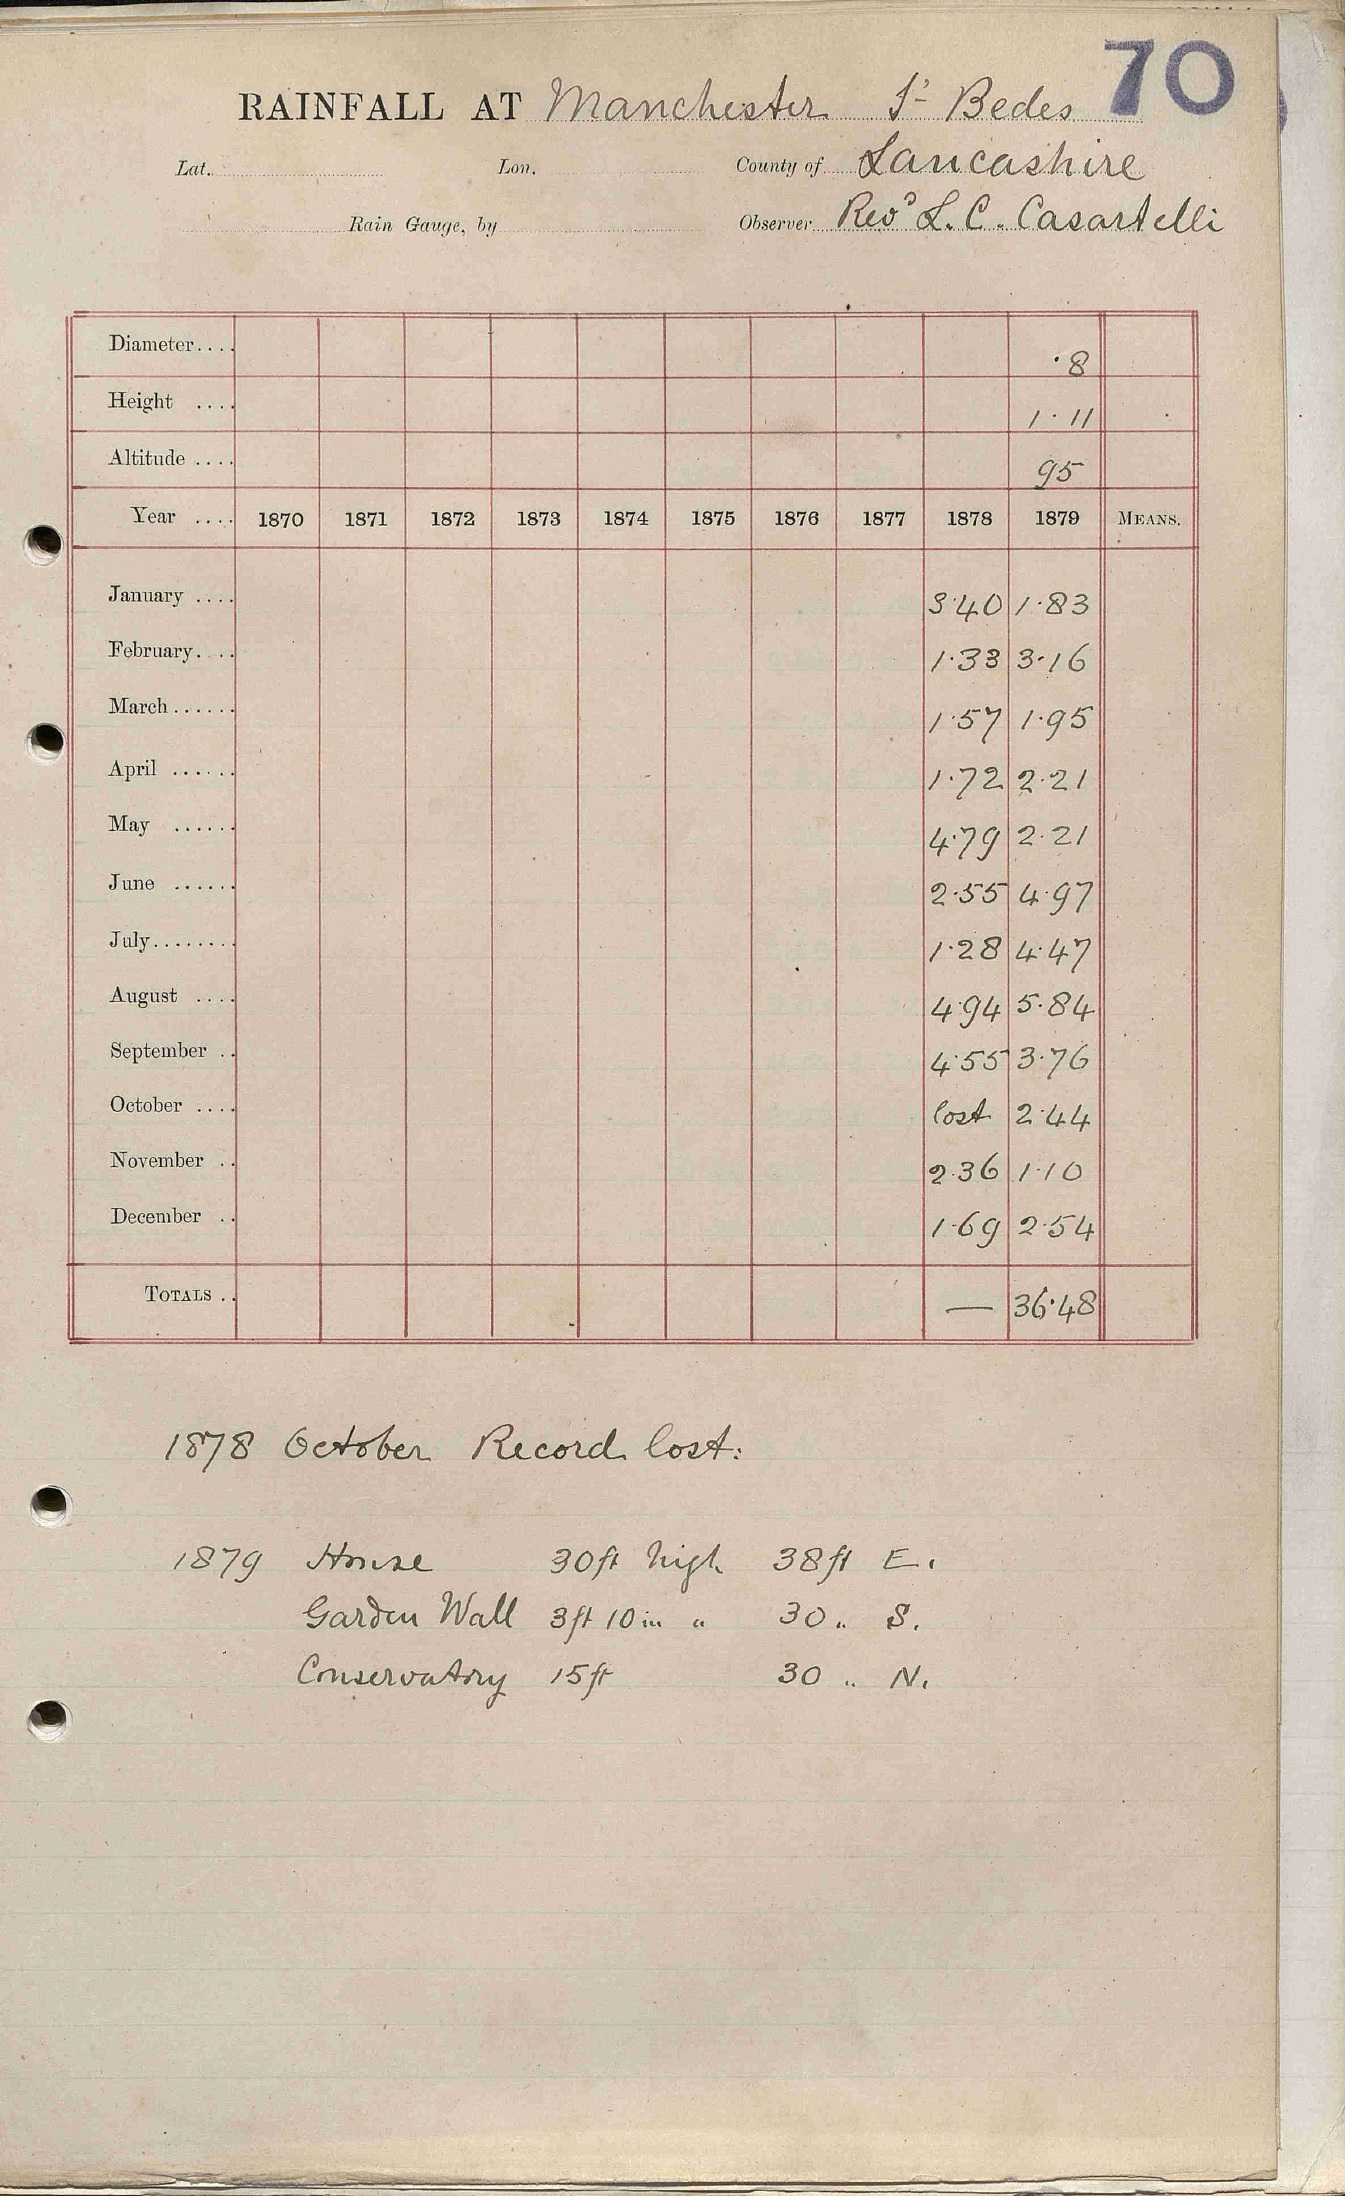 70
RAINFALL AT Manchester St Bedes
Lat. Lon. County of Lancashire
Rain Gauge, by Observer Revd L. C. Casartelli
Diameter.... ·8
Height .... 1·11
Altitude .... 95
Year .... 1870 1871 1872 1873 1874 1875 1876 1877 1878 1879 MEANS.
January .... 3·40 1·83
February.... 1·33 3·16
March...... 1·57 1·95
April ...... 1·72 2·21
May ...... 4·79 2·21
June ...... 2·55 4·97
July........ 1·28 4·47
August .... 4·94 5·84
September .. 4·55 3·76
October .... lost 2·44
November .. 2·36 1·10
December .. 1·69 2·54
TOTALS .. — 36·48
1878 October Record lost:
1879 House 30ft high 38ft E.
Garden Wall 3ft 10in " 30 " S.
Conservatory 15ft 30 " N.